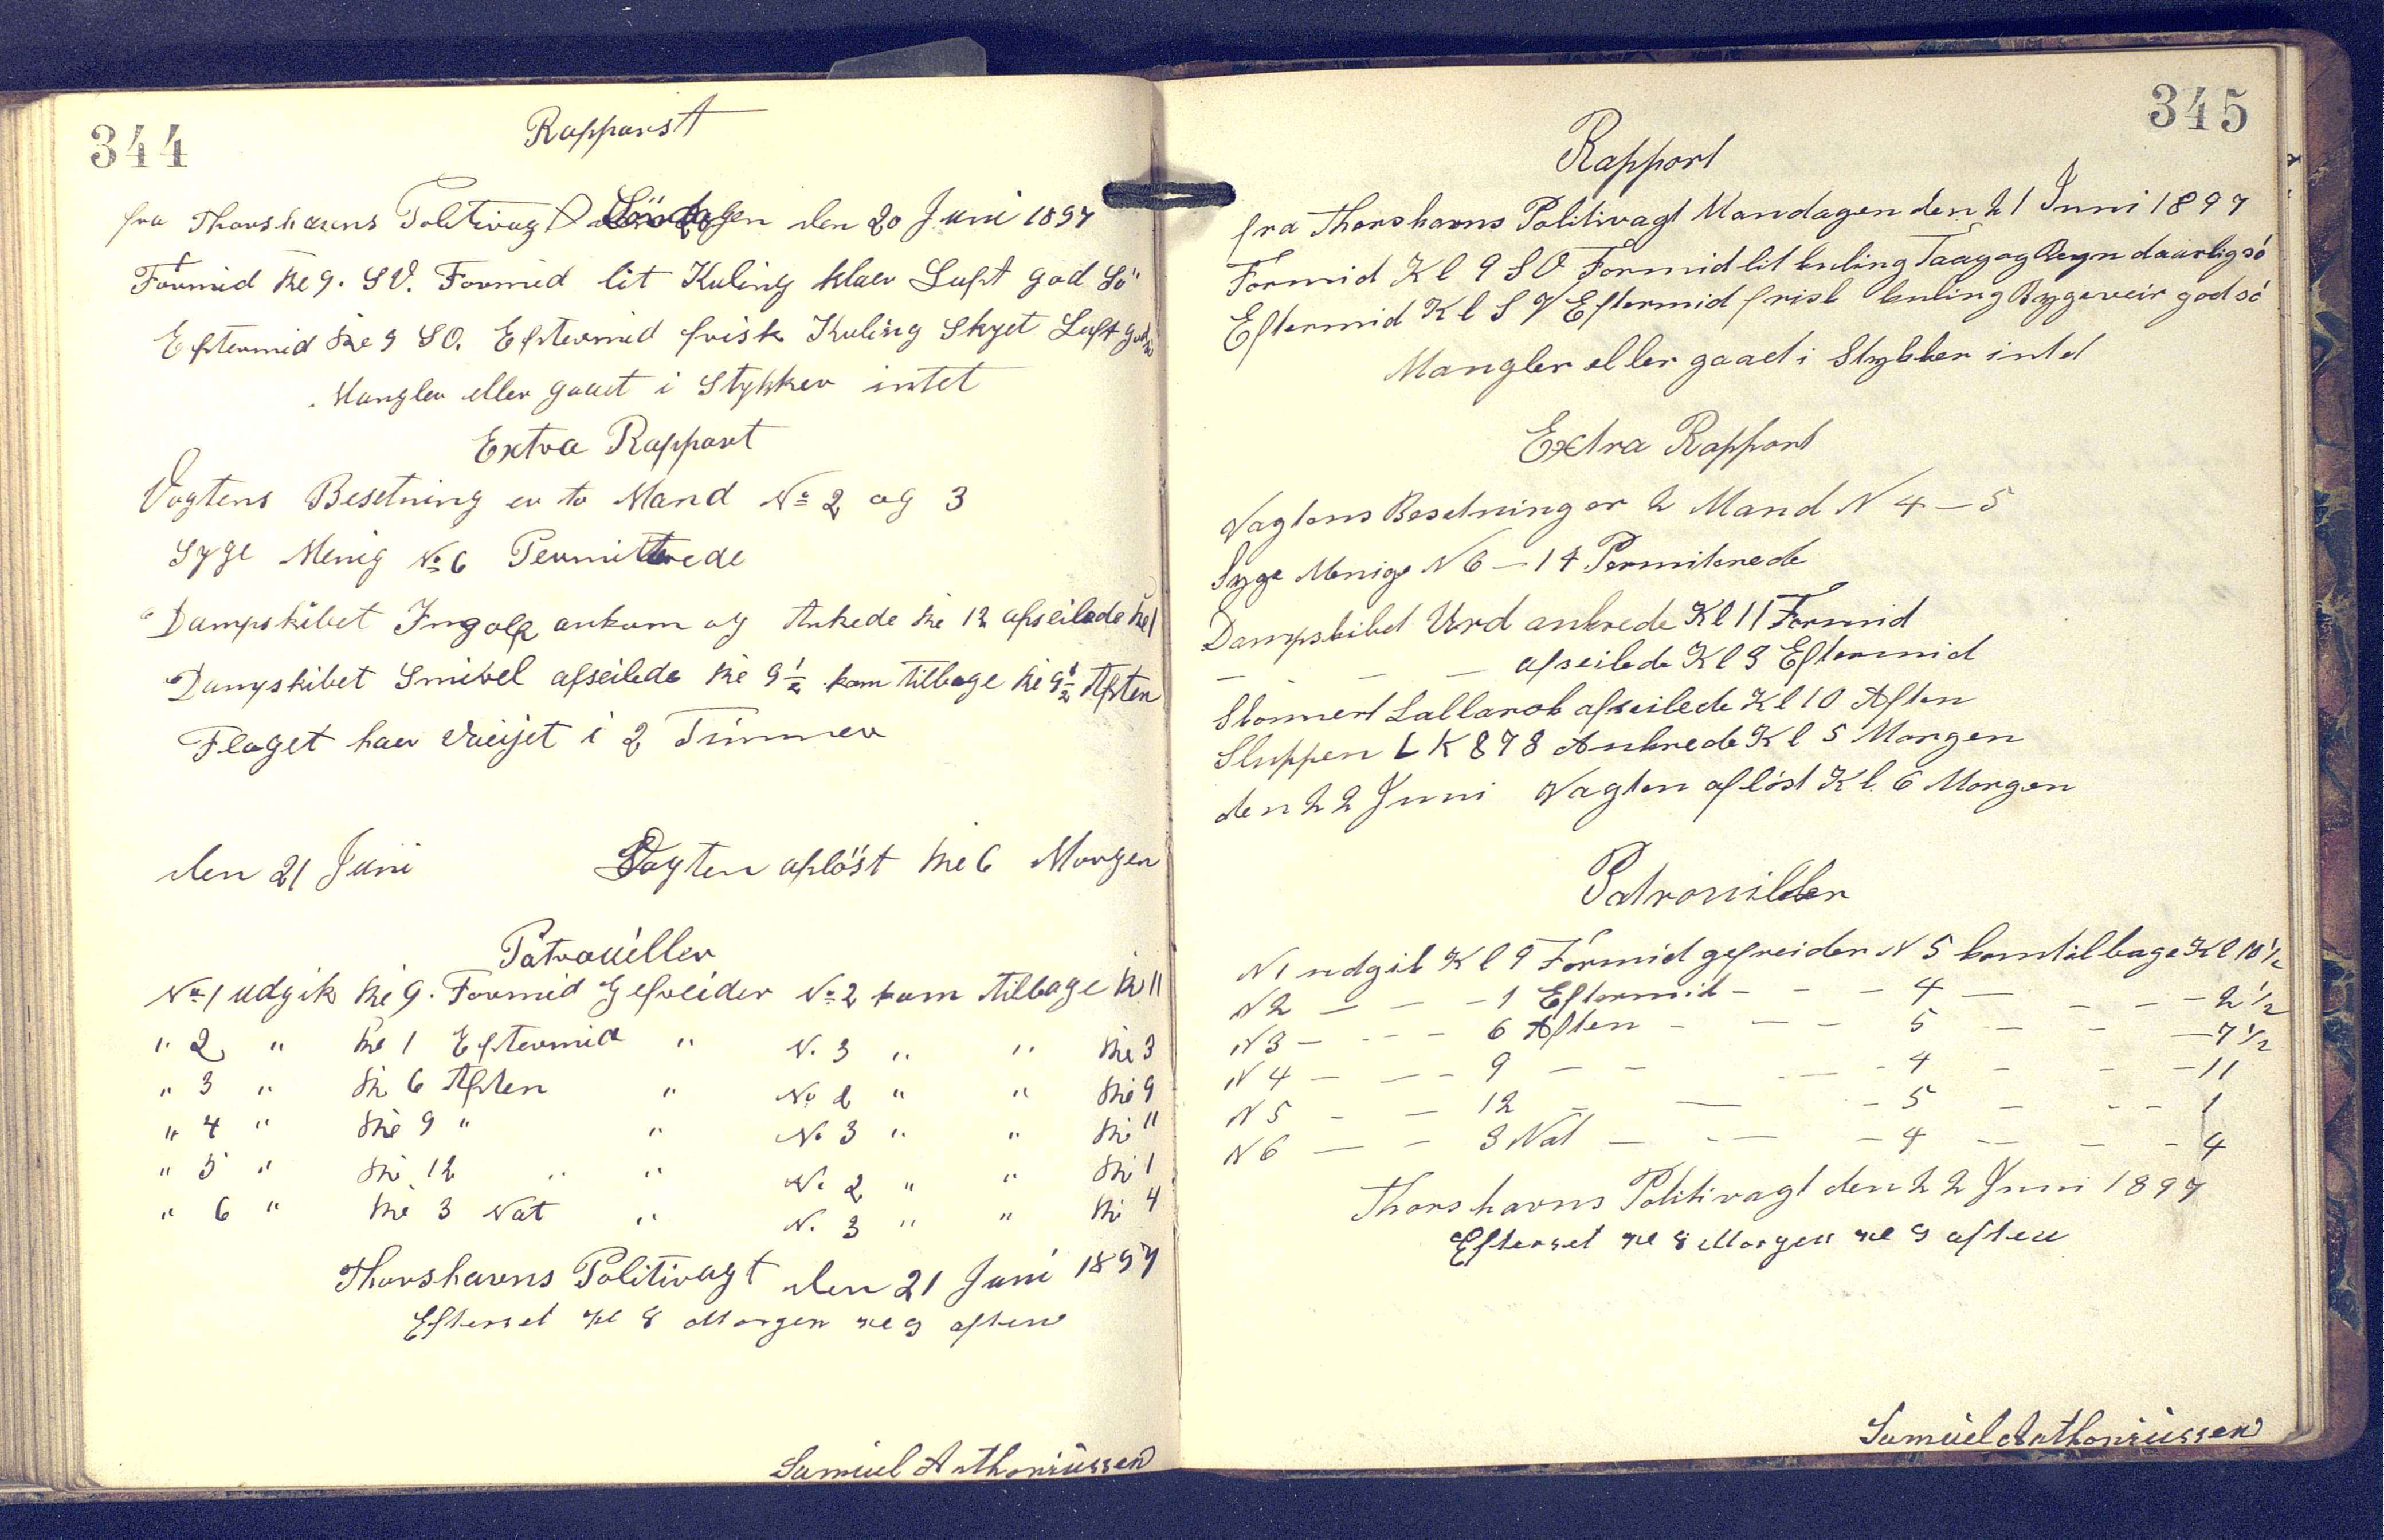 344
Rapport
fra Thorshavns Politivagt Söndagen den 20 Juni 1897
Formid Kl 9. SV. Formid lit Kuling klaer Luft god Sö
Eftermid Kl 9 SO. Eftermid frisk Kuling Skyet Luft god Sö
Mangler eller gaaet i Stykker intet
Extra Rapport
Vagtens Besetning er to Mand No 2 og 3
Syge Menig No 6 Permitterede
Dampskibet Ingolf ankom og Ankede Kl 12 afseilede Kl 1
Dampskibet Smiril afseilede Kl 9 1/2 kom tilbage Kl 9 1/2 Aften
Flaget haer Vaiejet i 2 Timmer
den 21 Juni Vagten aflöst Kl 6 Morgen
Patrouiller
No 1 udgik Kl 9. Formid Gefreider No 2 kom tilbage Kl 11
" 2 " Kl 1 Eftermid " N. 3 " " Kl 3
" 3 " Kl 6 Aften " No 2 " " Kl 9
" 4 " Kl 9 " " No 3 " " Kl 11
" 5 " Kl 12 " " N. 2 " " Kl 1
" 6 " Kl 3 Nat " N. 3 " " Kl 4
Thorshavns Politivagt den 21 Juni 1897
Efterset Kl 8 Morgen Kl 9 aften
Samúel Anthoniússen
345
Rapport
fra Thorshavns Politivagt Mandagen den 21 Juni 1897
Formid Kl 9 SO Formid lit kuling Taag og Regn daarlig só
Eftermid Kl SV Eftermid frisk kuling Bygeveir god só
Mangler eller gaaet i Stykker intet
Extra Rapport
Vagtens Besetning er 2 Mand N 4 – 5
Syge Menige N 6 – 14 Permiterede
Dampskibet Urd ankrede Kl 11 Formid
– – – afseilede Kl 9 Eftermid
Skonnert Lallarok afseilede Kl 10 Aften
Sluppen LK 878 Ankrede Kl 5 Morgen
den 22 Juni Vagten aflöst Kl. 6 Morgen
Patrouiller
N 1 udgik Kl 9 Formid gefreider N 5 kom tilbage Kl 10 1/2
N 2 – – – 1 Eftermit – – – 4 – – – – 2 1/2
N 3 – – – 6 Aften – – – 5 – – – 7 1/2
N 4 – – – 9 – – – – 4 – – – 11
N 5 – – 12 – – – 5 – – – 1
N 6 – – 3 Nat – – – – 4 – – – 4
Thorshavns Politivagt den 22 Juni 1897
Efterset Kl 8 Morgen Kl 9 aften
Samúel Anthoniússen